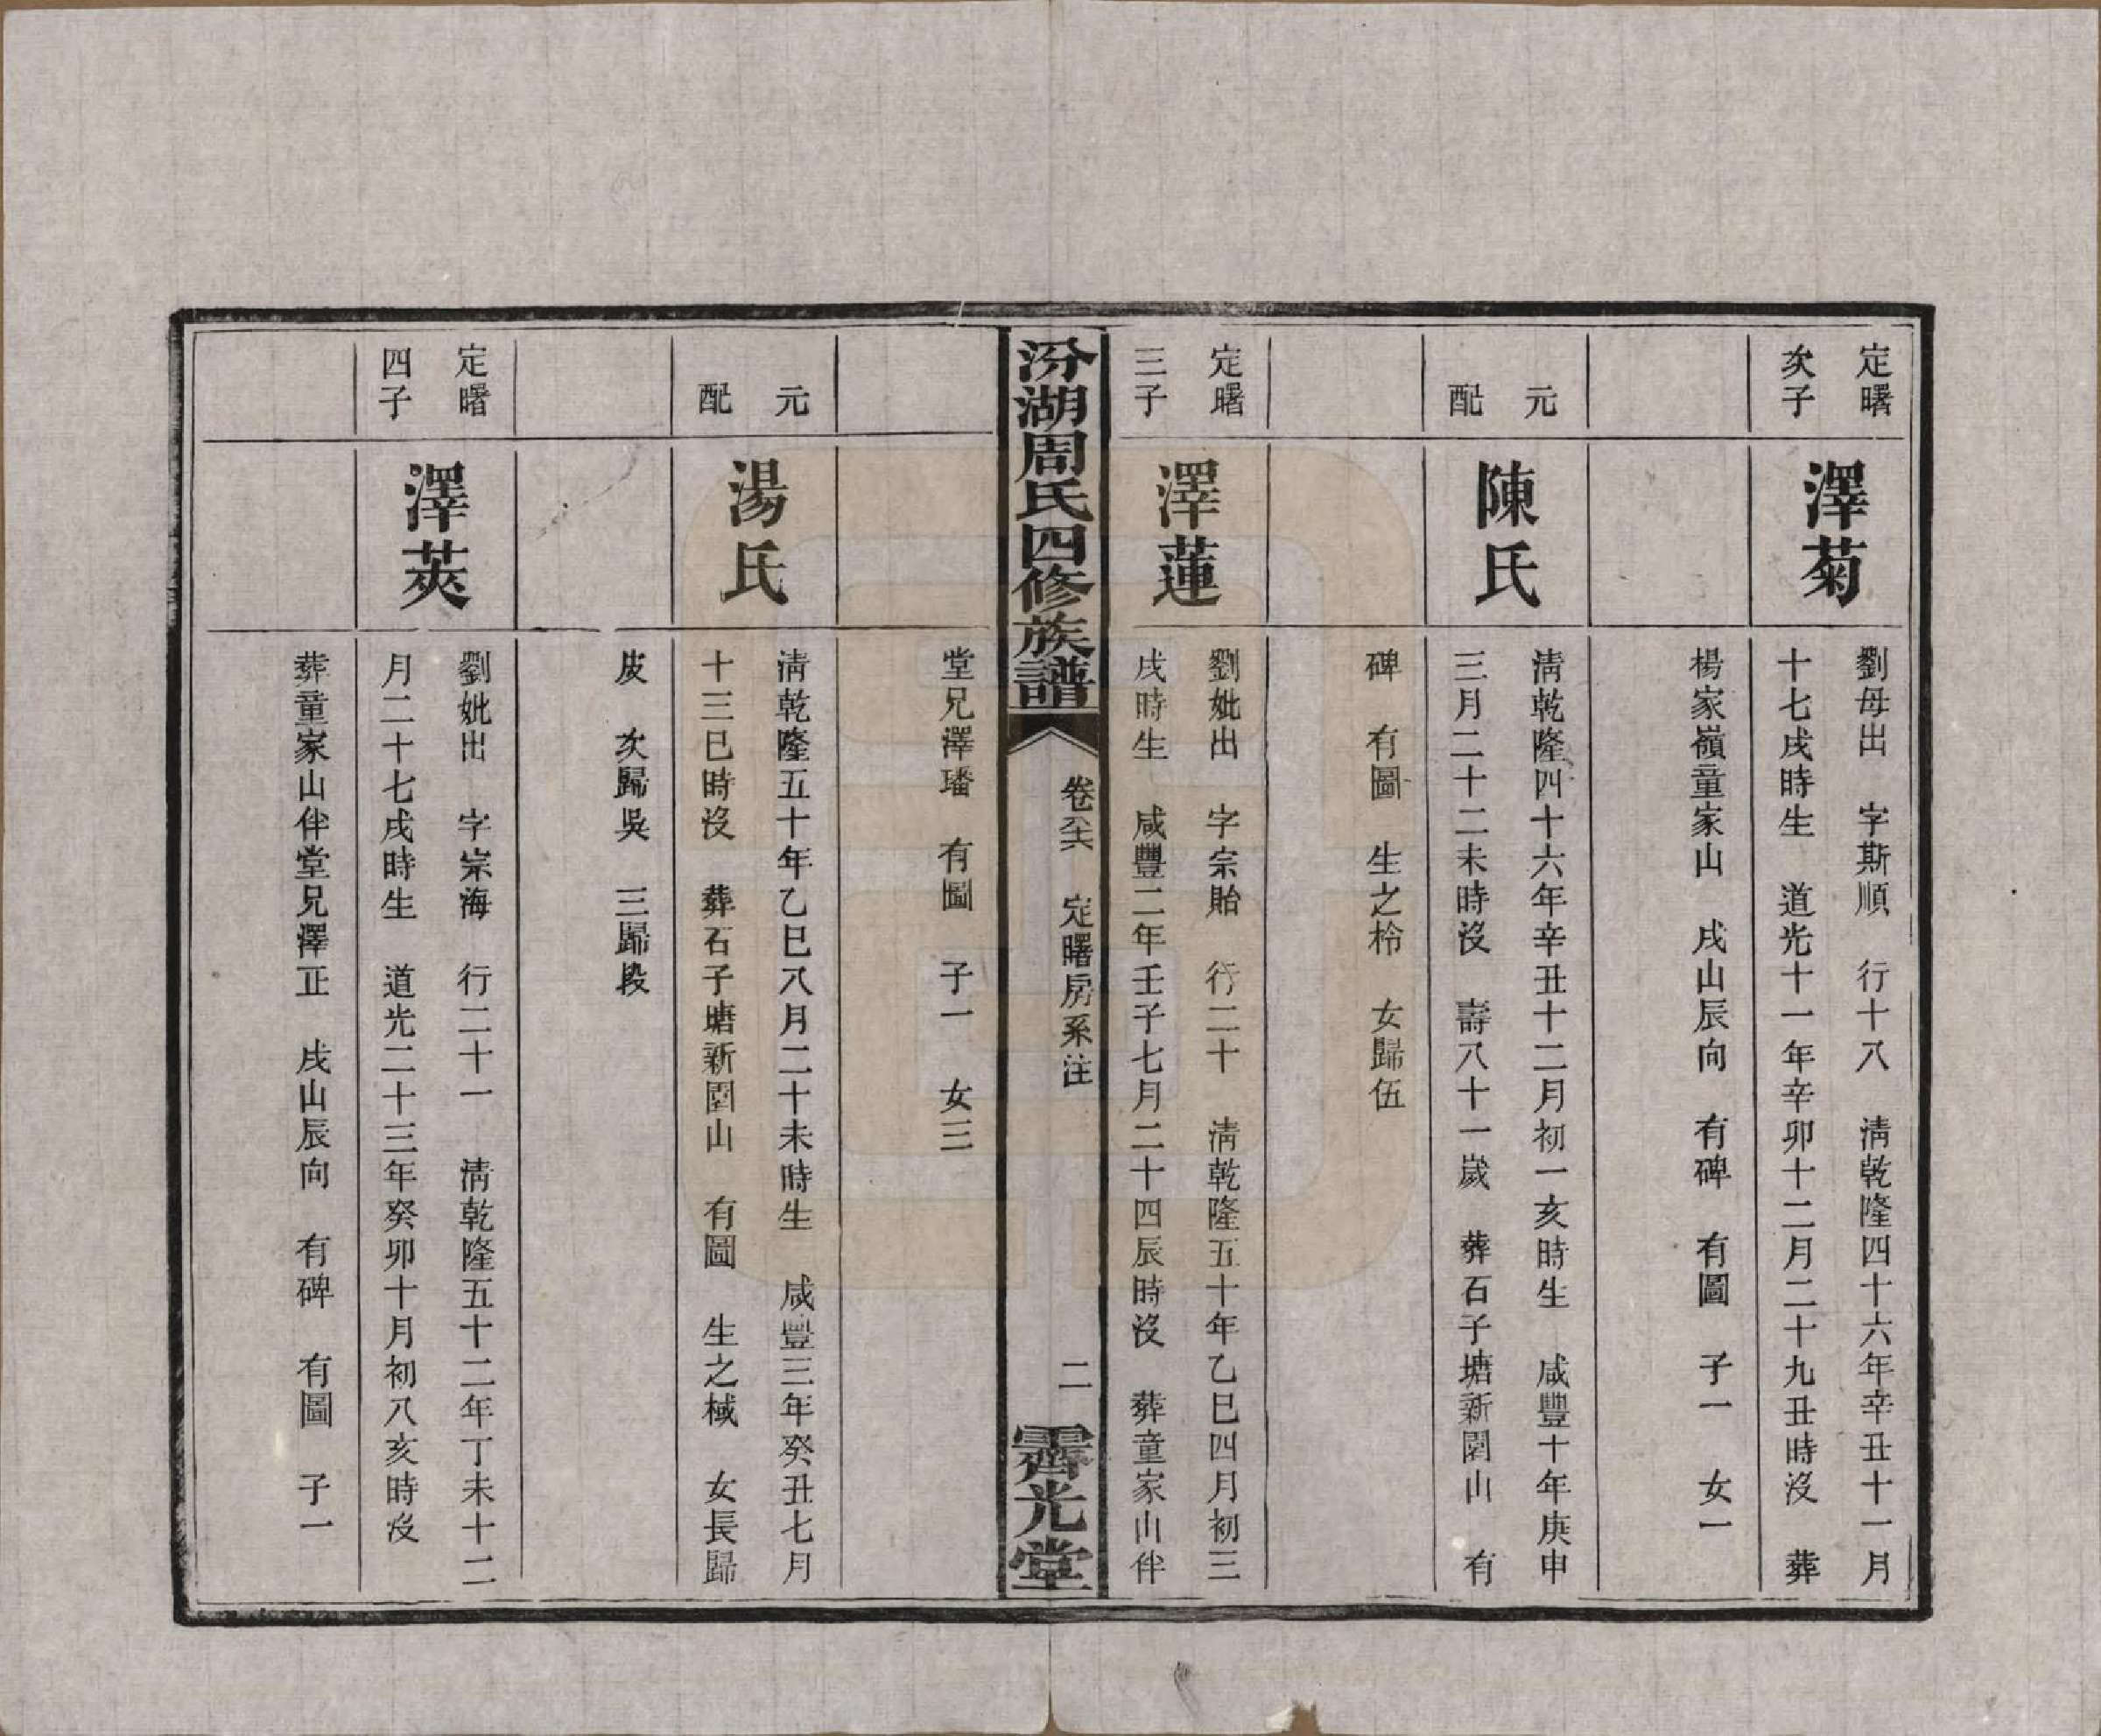 定曙
次子
澤菊
劉母出　字斯順　行十八　清乾隆四十六年辛丑十一月
十七戌時生　道光十一年辛卯十二月二十九丑時沒　葬
楊家嶺童家山　戌山辰向　有碑　有圖　子一　女一
元
配
陳氏
清乾隆四十六年辛丑十二月初一亥時生　咸豐十年庚申
三月二十二未時沒　壽八十一歲　葬石子塘新園山　有
碑　有圖　生之枔　女歸伍
定曙
三子
澤蓮
劉妣出　字宗貽　行二十　清乾隆五十年乙巳四月初三
戌時生　咸豐二年壬子七月二十四辰時沒　葬童家山伴
汾湖周氏四修族譜
卷六　定曙房系注
二
霽光堂
堂兄澤璠　有圖　子一　女三
元
配
湯氏
清乾隆五十年乙巳八月二十未時生　咸豐三年癸丑七月
十三巳時沒　葬石子塘新園山　有圖　生之棫　女長歸
皮　次歸吳　三歸段
定曙
四子
澤莢
劉妣出　字宗海　行二十一　清乾隆五十二年丁未十二
月二十七戌時生　道光二十三年癸卯十月初八亥時沒
葬童家山伴堂兄澤正　戌山辰向　有碑　有圖　子一